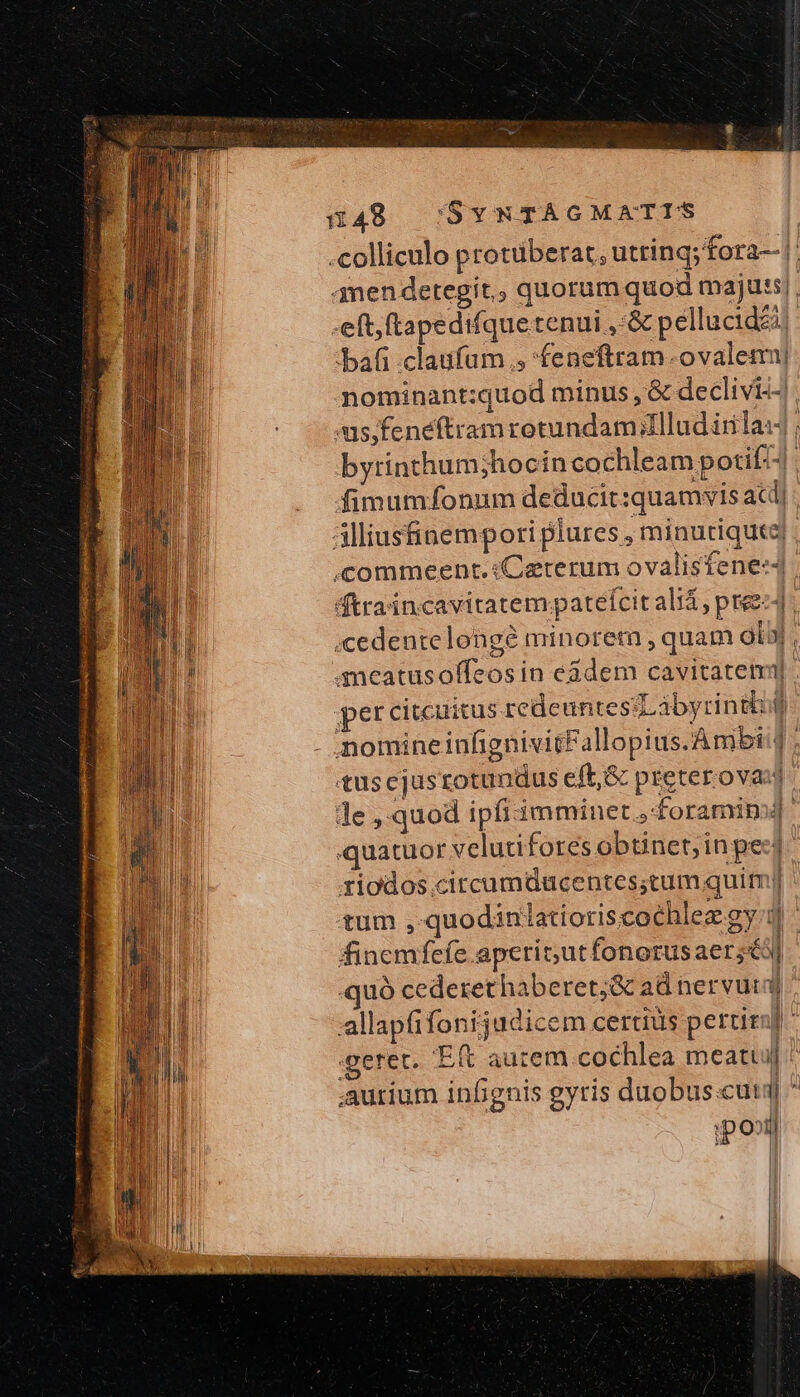 148 SYNTAGMATIS
colliculo protuberat, utrinq; fora-
men detegit, quorum quod majus
est, stapedisque tenui, & pellucidâ
basi clausum, fenestram ovalem
nominant: quod minus, & declivi-
us, fenestram rotundam. Illud in la-
byrinthum; hoc in cochleam potis-
simum sonum deducit: quamvis ad
illius finem pori plures, minutique
commeent. Cæterum ovalis fene-
stra in cavitatem patescit aliâ, præ-
cedente longè minorem, quam ob
meatus offeos in eâdem cavitatem
per circuitus redeuntes Labyrinthi
nomine insignivit Fallopius. Ambi-
tus ejus rotundus est, & preter ova-
le, quod ipsi imminet, foramin
quatuor veluti fores obtinet, in pe-
riodos circumducentes; tum quim
tum, quod in latioris cochleæ gy
finem sese aperit, ut sonorus aer, eò
quò cederet haberet; & ad nervum
allapsi soni judicem certiùs pertin
geret. Est autem cochlea meatu
aurium insignis gyris duobus cum
po